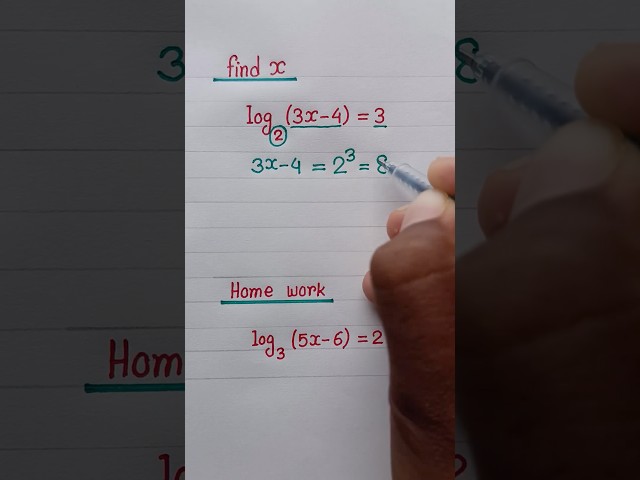 find x
log₂(3x-4) = 3
3x-4 = 2³ = 8
Home work
log₃(5x-6) = 2